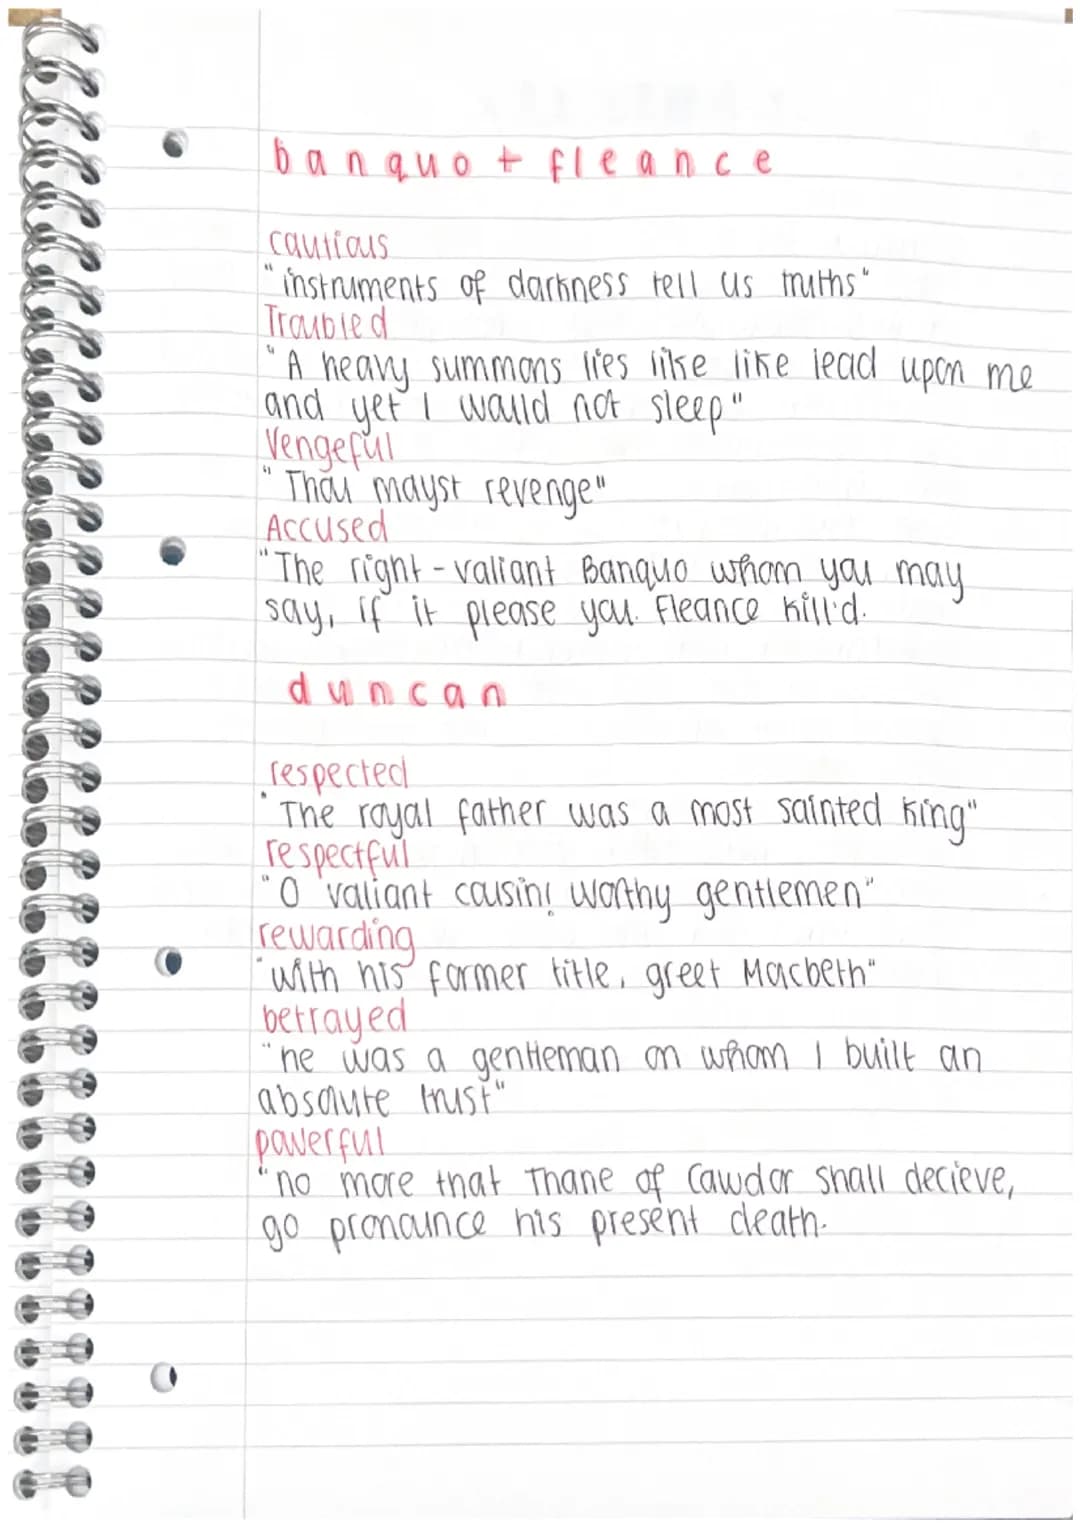 banquo + fleance
cautious
"instruments of darkness tell us truths"
Troubled
"A heavy summons lies like like lead upon me
and yet I would not sleep"
Vengeful
"Thou mayst revenge"
Accused
"The right-valiant Banquo whom you may
say, if it please you. Fleance kill'd.
duncan
respected
"The royal father was a most sainted king"
respectful
"O valiant cousin! worthy gentlemen"
rewarding
"with his former title, greet Macbeth"
betrayed
"he was a gentleman on whom I built an
absolute trust"
powerful
"no more that Thane of Cawdor shall decieve,
go pronounce his present death.